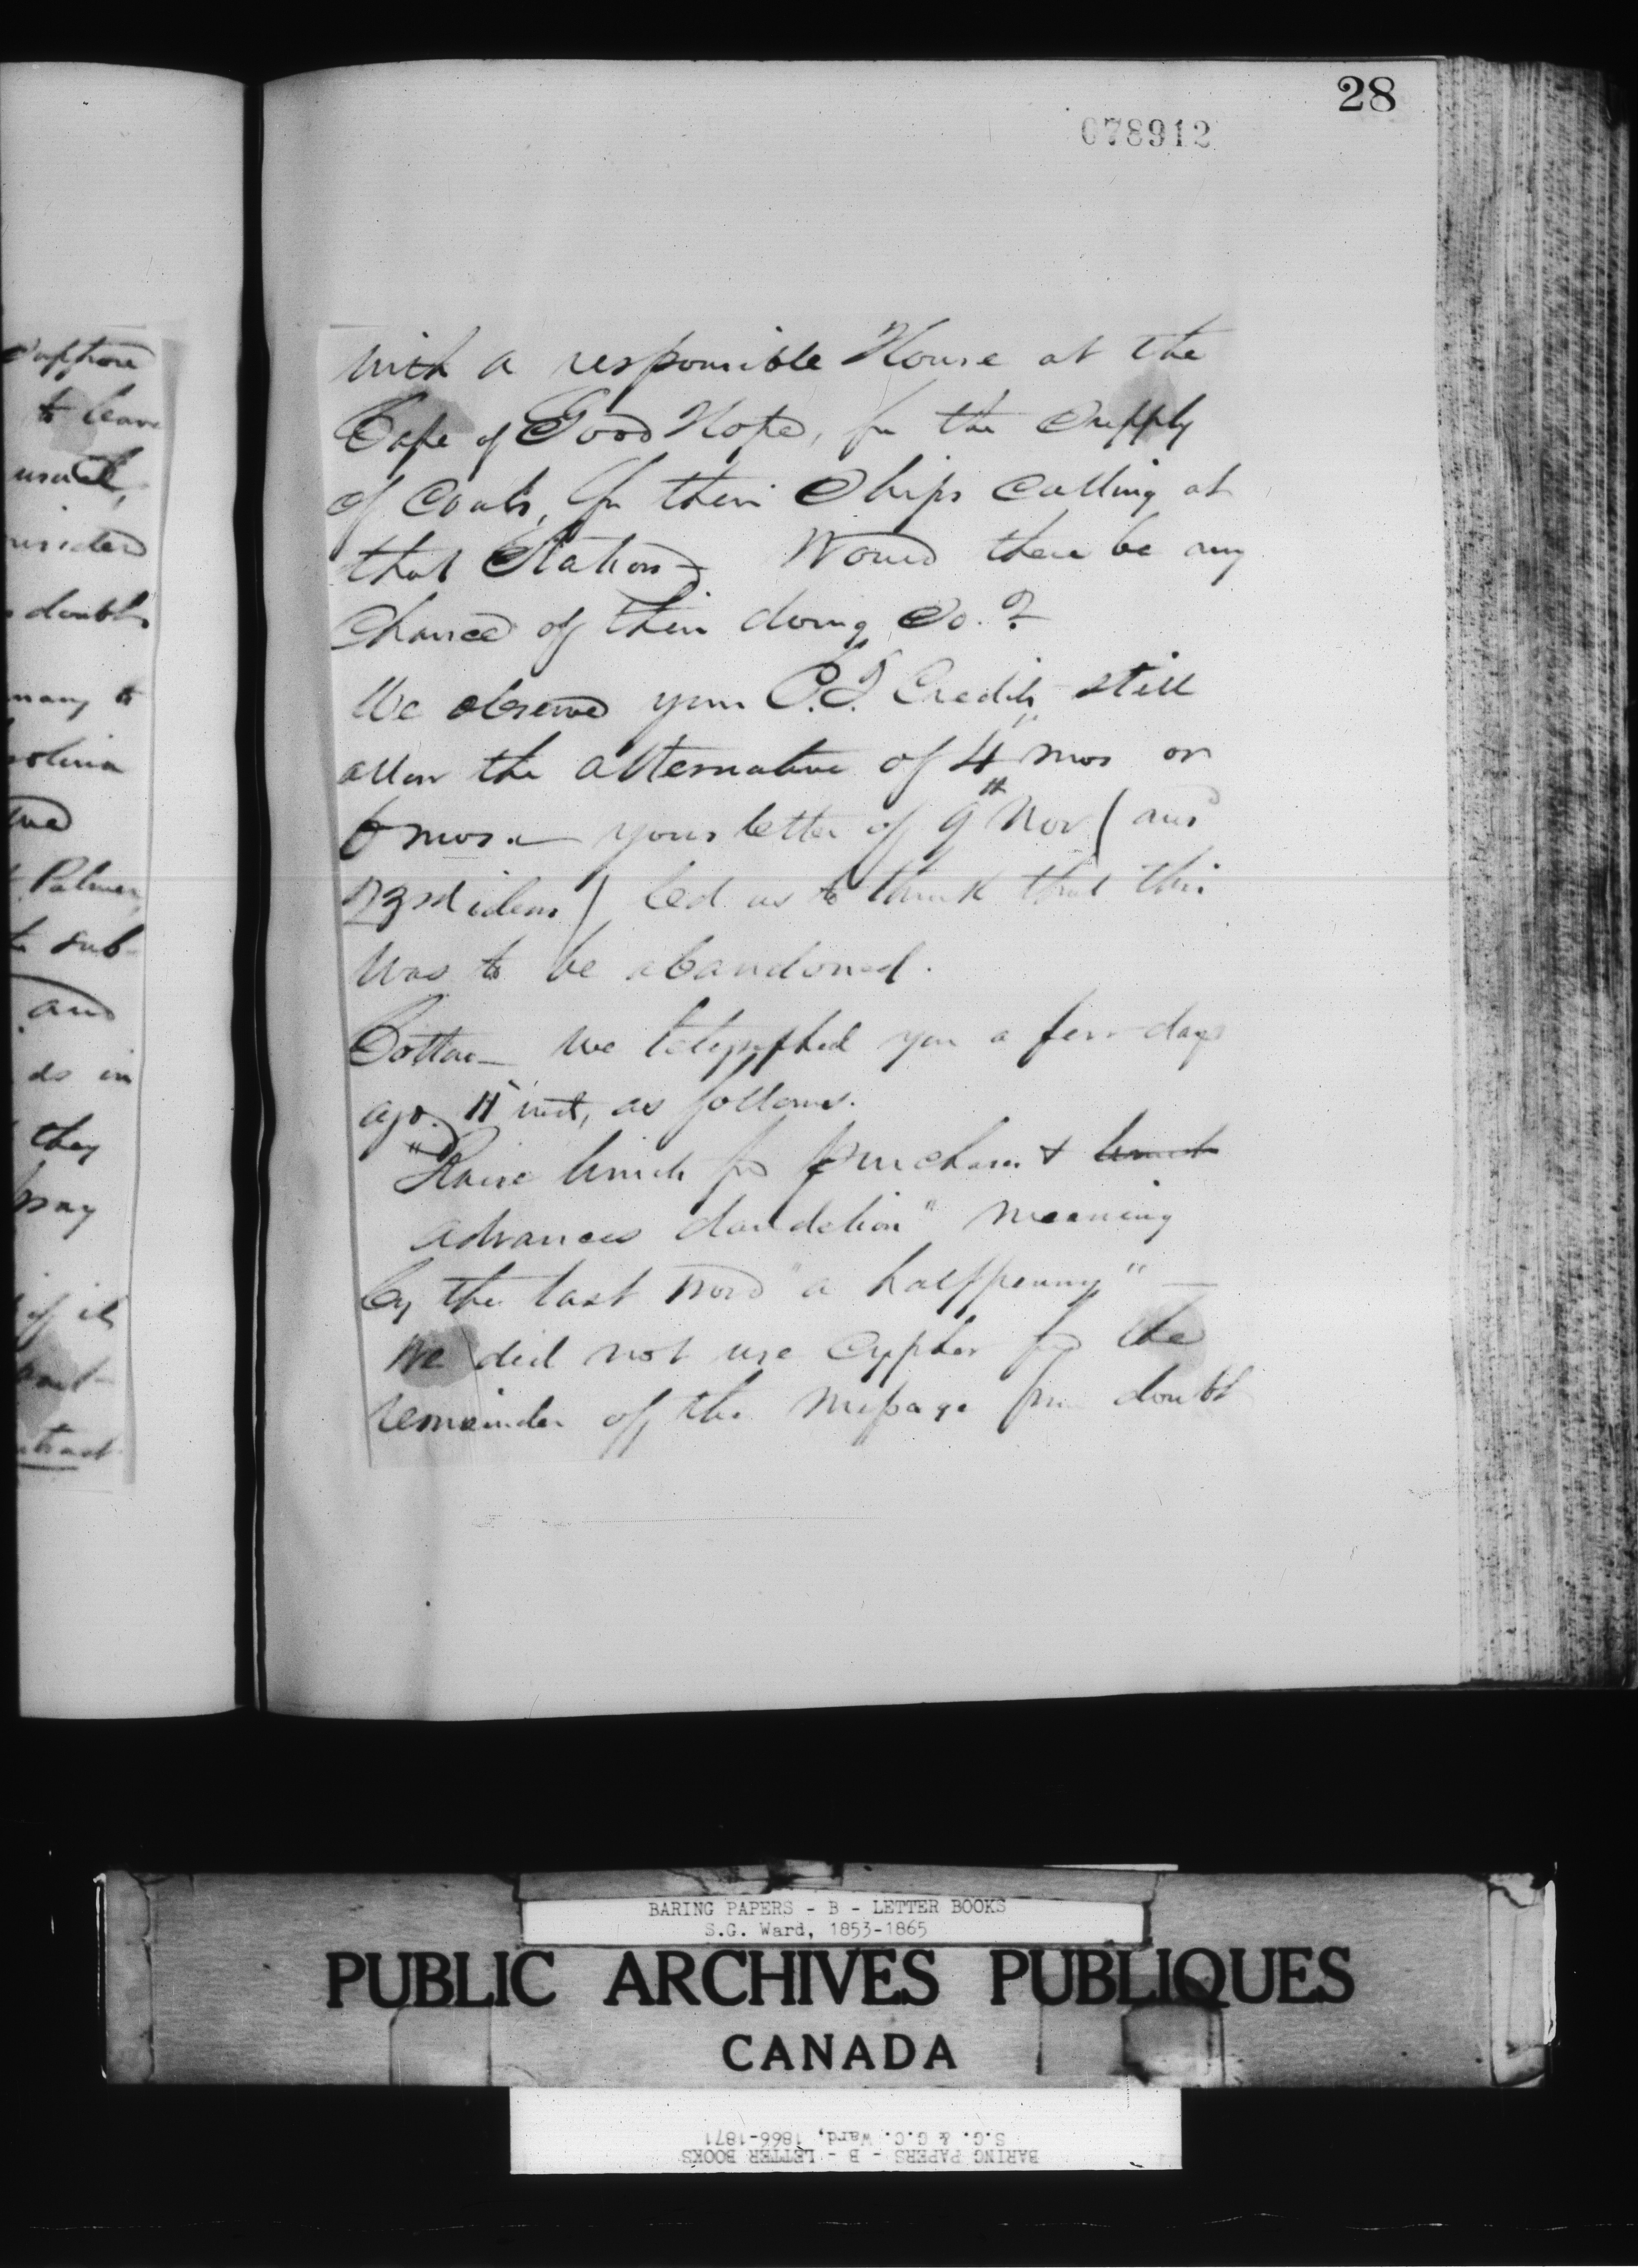 28
078912
with a responsible House at the
Cape of Good Hope, for the supply
of Coals, for their Ships calling at
that Station – Would there be any
Chance of their doing so?
We observe your Credits still
allow the alternative of 4 mos or
6 mos. – your letter of 9th Nov (and
23rd idem) led us to think that this
was to be abandoned.
Cotton – We telegraphed you a few days
ago. inst, as follows.
"Raise limit for purchases & limit
advances dandelion" meaning
by the last word "a halfpenny" –
We did not use Cypher for the
remainder of the Message from doubt
to leave
usual,
doubts
many to
Palmer
to sub-
and
ds in
they
pay
if it
BARING PAPERS - B - LETTER BOOKS
S.G. Ward, 1853-1865
PUBLIC ARCHIVES PUBLIQUES
CANADA
BARING PAPERS - B - LETTER BOOKS
S.G. & G.C. Ward, 1866-1871